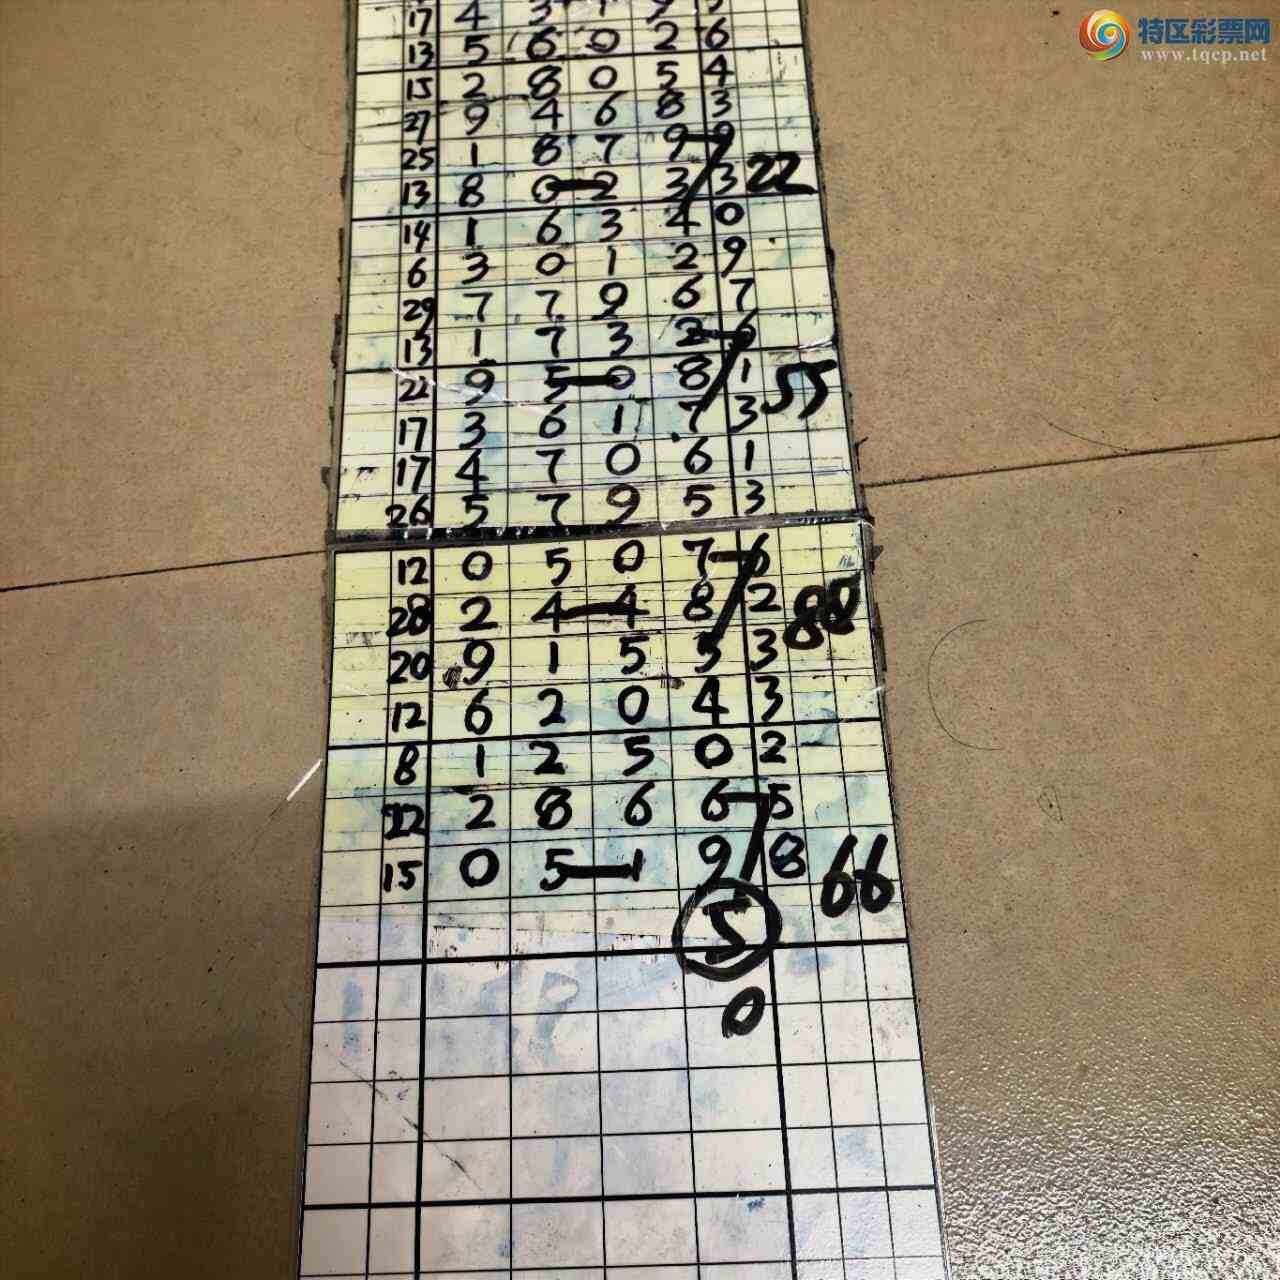 特区彩票网
www.tqcp.net
17 4 3 1 9
13 5 6 0 2 6
15 2 8 0 5 4
27 9 4 6 8 3
25 1 8 7 9 9
13 8 0 2 3 3 22
14 1 6 3 4 0
6 3 0 1 2 9
29 7 7 9 6 7
13 1 7 3 2 6
22 9 5 0 8 1 55
17 3 6 1 7 3
17 4 7 0 6 1
26 5 7 9 5 3
12 0 5 0 7 6
28 2 4 4 8 2 88
20 9 1 5 5 3
12 6 2 0 4 3
8 1 2 5 0 2
22 2 8 6 6 5
15 0 5 1 9 8 66
5
0